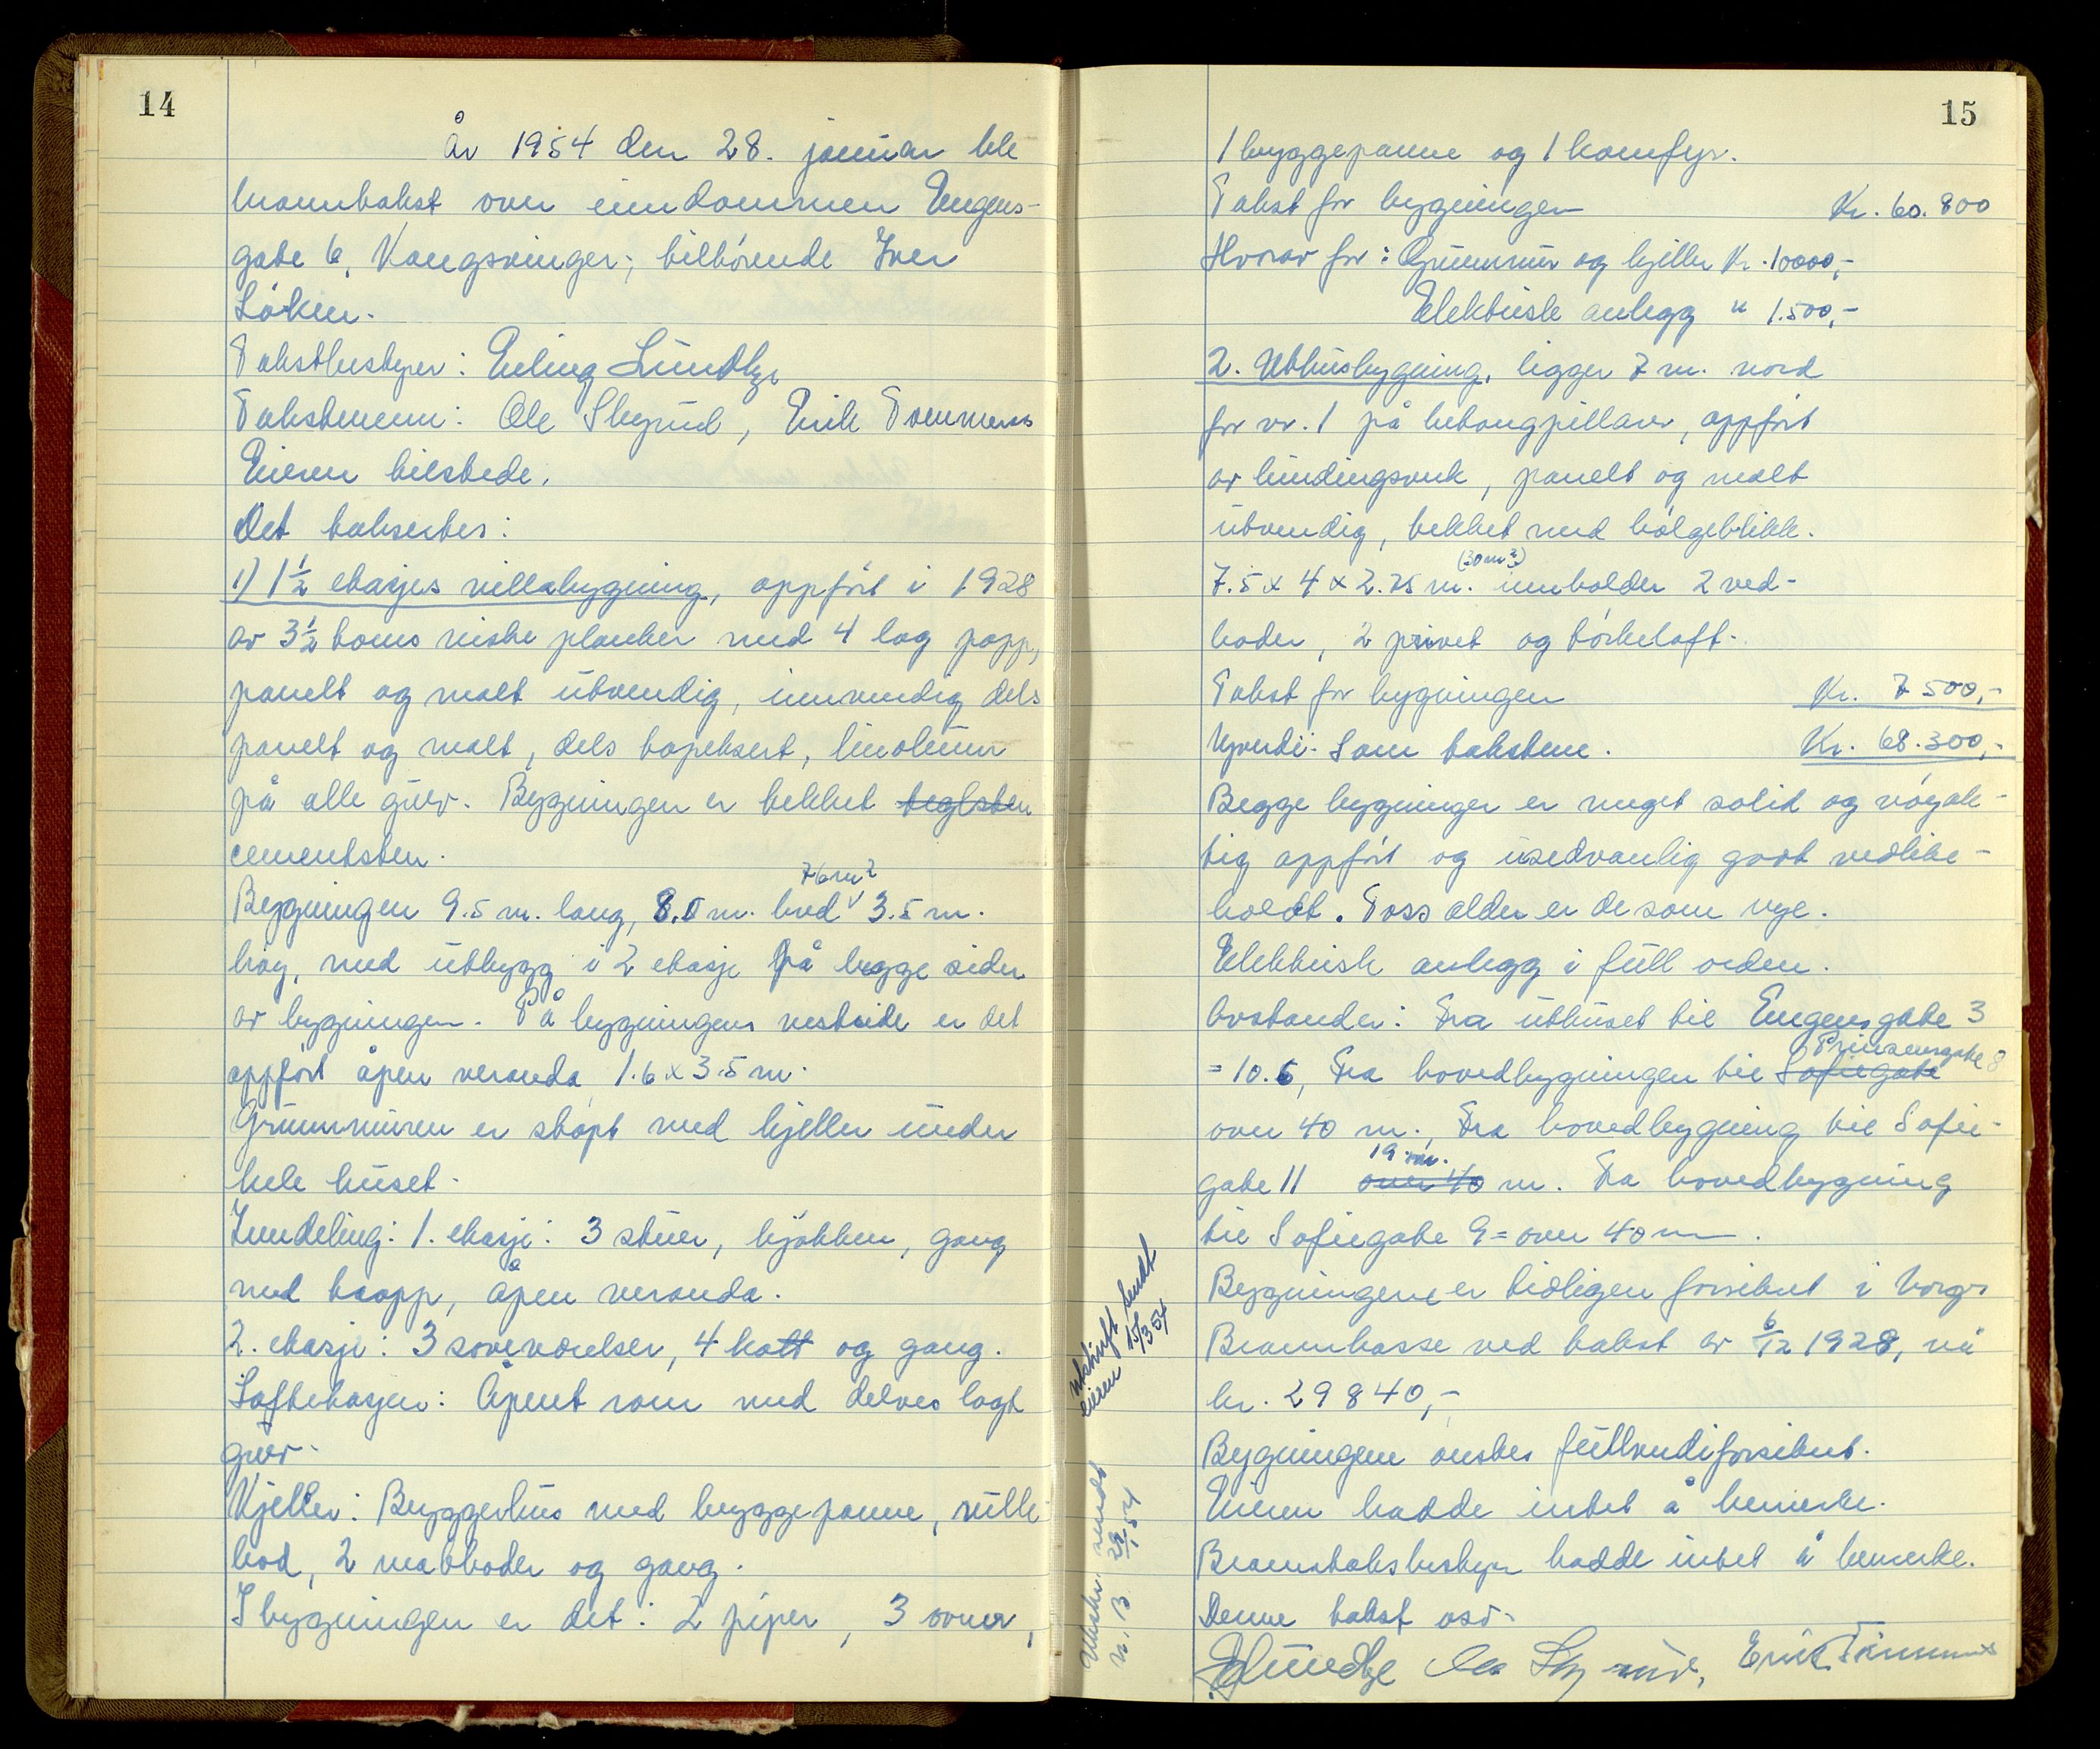 14
År 1954 den 28. januar ble
branntakst over eiendommen Eugens-
gate 6, Kongsvinger, tilhörende Iver
Löken.
Takstbestyrer: Erling Lundby
Takstmenn: Ole Skyrud, Erik
Eieren tilstede.
Det takseres:
1) 1½ etasjes villabygning, oppfört i 1928
av 3½ toms planker med 4 lag papp,
panelt og malt utvendig, innvendig dels
panelt og malt, dels tapeksert, linoleum
på alle gulv. Bygningen er tekket teglsten
cementsten.
76 m²
Bygningen 9.5 m. lang, 8.0 m. bred 3.5 m.
höy, med utbygg i 2 etasje på begge sider
av bygningen. På bygningens vestside er det
oppfört åpen veranda 1.6 x 3.5 m.
Grunnmuren er stöpt med kjeller under
hele huset.
Inndeling: 1. etasje: 3 stuer, kjökken, gang
med trapp, åpen veranda.
2. etasje: 3 soveværelser, 4 kott og gang.
Loftetasjen: Åpent rom med delvis lagt
gulv.
Kjeller: Bryggerhus med bryggepanne, rulle-
bod, 2 matboder og gang.
I bygningen er det: 2 piper, 3 ovner,
15
1 bryggepanne og 1 komfyr.
Takst for bygningen Kr. 60.800
Hvorav for: Grunnmur og kjeller Kr. 10000,-
Elektrisk anlegg " 1.500,-
2. Uthusbygning, ligger 7 m. nord
for nr. 1 på betongpillarer, oppfört
av bindingsverk, panelt og malt
utvendig, tekket med bölgeblikk.
(30 m²)
7.5 x 4 x 2.75 m. inneholder 2 ved-
boder, 2 privet og törkeloft.
Takst for bygningen Kr. 7 500,-
Nyverdi: Som takstene. Kr. 68.300,-
Begge bygninger er meget solid og nöyak-
tig oppfört og usedvanlig godt vedlike-
holdt. Tross alder er de som nye.
Elektrisk anlegg i full orden.
Avstander: Fra uthuset til Eugensgate 3
Prinsensgate 8
= 10.5, Fra hovedbygningen til Sofiegate
over 40 m., Fra hovedbygning til Sofie-
19 m.
gate 11 over 40 m. Fra hovedbygning
til Sofiegate 9 = over 40 m.
Bygningene er tidligere forsikret i Norges
Brannkasse ved takst av 6/12 1928, nå
kr. 29840,-
Bygningen önskes fullverdiforsikret.
Eieren hadde intet å bemerke.
Branntakstbestyrer hadde intet å bemerke.
Denne takst osv.
ELundby Ole Skyrud, Erik
utskrift sendt
eieren 15/3 54
Utskr. sendt
N. B. 54